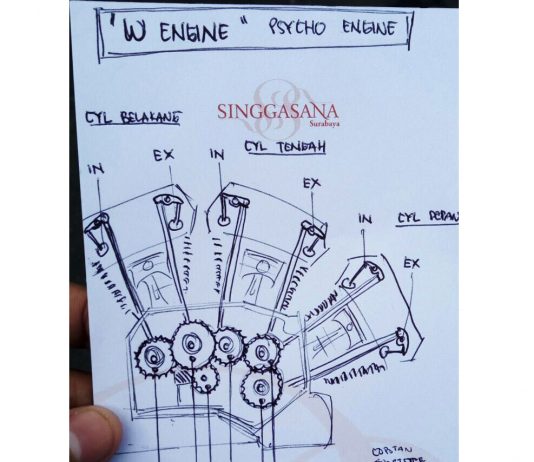 "W ENGINE" PSYCHO ENGINE
SINGGASANA
Surabaya
CYL BELAKANG
CYL TENGAH
IN
EX
IN
EX
IN
CYL DEPAN
EX